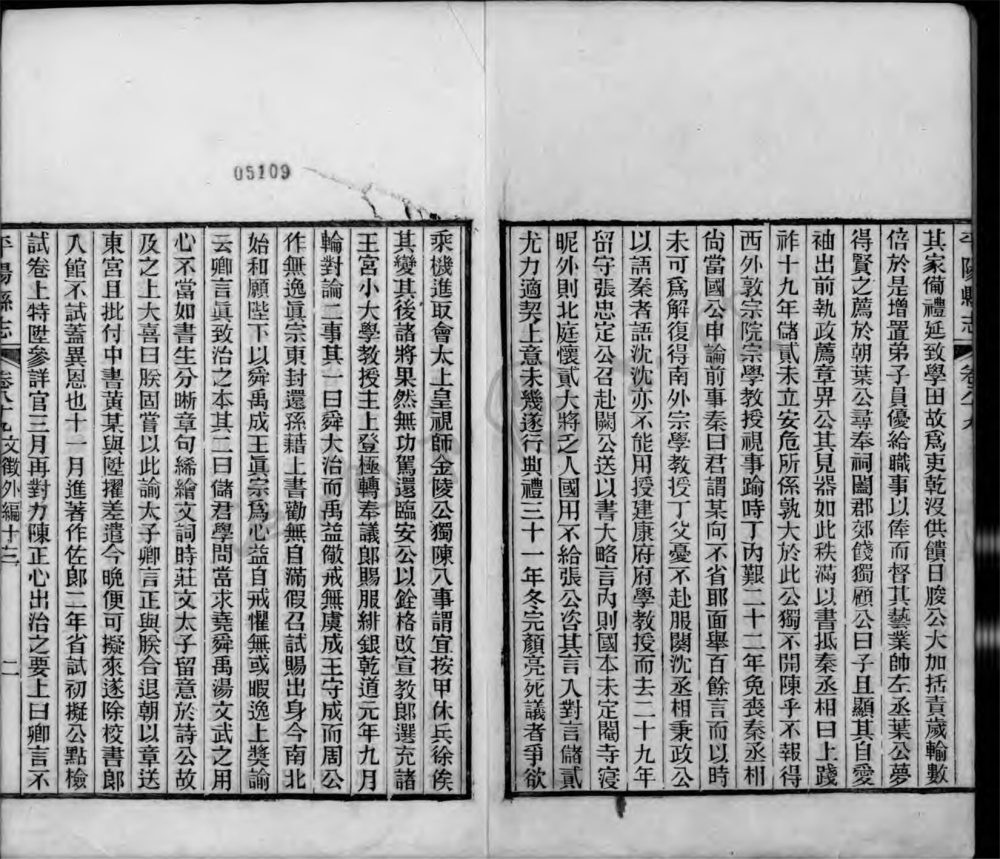 平陽縣志
卷八十九
其家備禮延致學田故爲吏乾沒供饋日朘公大加括責歲輸數
倍於是增置弟子員優給職事以俸而督其藝業帥左丞葉公夢
得賢之薦於朝葉公尋奉祠闔郡郊餞獨顧公曰子且顯其自愛
袖出前執政薦章畀公其見器如此秩滿以書抵秦丞相曰上踐
祚十九年儲貳未立安危所係孰大於此公獨不開陳乎不報得
西外敦宗院宗學教授視事踰時丁內艱二十二年免喪秦丞相
尙當國公申論前事秦曰君謂某向不省耶面舉百餘言而以時
未可爲解復得南外宗學教授丁父憂不赴服闋沈丞相秉政公
以語秦者語沈沈亦不能用授建康府府學教授而去二十九年
留守張忠定公召赴闕公送以書大略言內則國本未定閹寺寖
昵外則北庭懷貳大將乏人國用不給張公咨其言入對言儲貳
尤力適契上意未幾遂行典禮三十一年冬完顏亮死議者爭欲
05109
乘機進取會太上皇視師金陵公獨陳八事謂宜按甲休兵徐俟
其變其後諸將果然無功駕還臨安公以銓格改宣教郎選充諸
王宮小大學教授主上登極轉奉議郎賜服緋銀乾道元年九月
輪對論二事其一曰舜大治而禹益儆戒無虞成王守成而周公
作無逸眞宗東封還孫藉上書勸無自滿假召試賜出身今南北
始和願陛下以舜禹成王眞宗爲心益自戒懼無或暇逸上獎諭
云卿言眞致治之本其二曰儲君學問當求堯舜禹湯文武之用
心不當如書生分晰章句絺繪文詞時莊文太子留意於詩公故
及之上大喜曰朕固嘗以此諭太子卿言正與朕合退朝以章送
東宮且批付中書黃某與陞擢差遣今晚便可擬來遂除校書郎
入館不試蓋異恩也十一月進著作佐郎二年省試初擬公點檢
試卷上特陞參詳官三月再對力陳正心出治之要上曰卿言不
平陽縣志
卷八十九
文徵外編十三
二